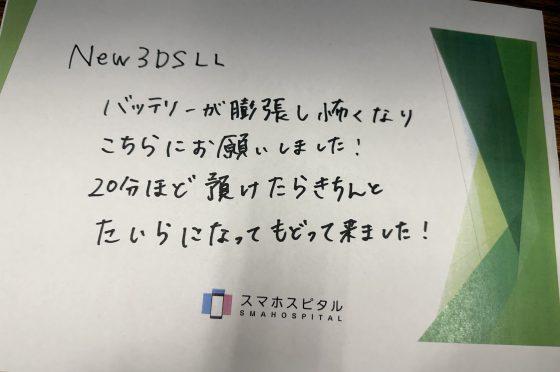 New3DSLL
バッテリーが膨張し怖くなり
こちらにお願いしました！
20分ほど預けたらきちんと
たいらになってもどって来ました！
スマホスピタル
SMAHOSPITAL